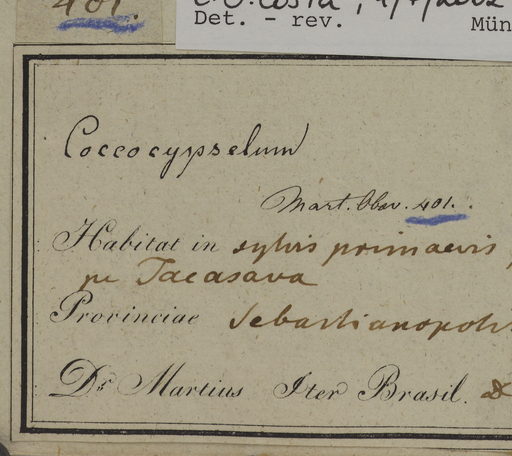 401.
C.B. Costa, 4/7/2002
Det. - rev. Mün
Coccocypselum
Mart. Obs. 401.
Habitat in sylvis primaevis
pr Tacasava
Provinciae Sebastianopolit
Dr Martius Iter Brasil. &